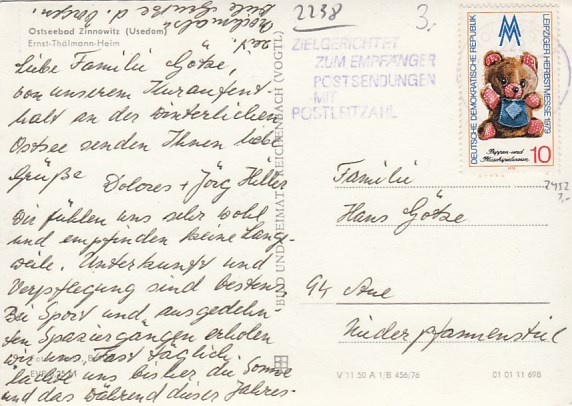 Ostseebad Zinnowitz (Usedom)
Ernst-Thälmann-Heim
Liebe Familie Götze,
von unserem Kuraufent-
halt an der winterlichen
Ostsee senden Ihnen liebe
Grüße Dolores + Jörg Hiller
Wir fühlen uns sehr wohl
und empfinden keine Lang-
weile. Unterkunft und
Verpflegung sind bestens.
Bei Sport und ausgedehn-
ten Spaziergängen erholen
wir uns fast täglich
lachte uns bisher die Sonne
und das während dieser Jahres-
zeit.
BILD UND HEIMAT REICHENBACH (VOGTL)
2238
3.-
ZIELGERICHTET
ZUM EMPFÄNGER
POSTSENDUNGEN
MIT
POSTLEITZAHL
DEUTSCHE DEMOKRATISCHE REPUBLIK
LEIPZIGER HERBSTMESSE 1979
Puppen- und
Plüschspielwaren
10
2452
3,-
Familie
Hans Götze
94 Aue
Niederpfannenstiel
V 11 50 A 1/B 456/76
01 01 11 698